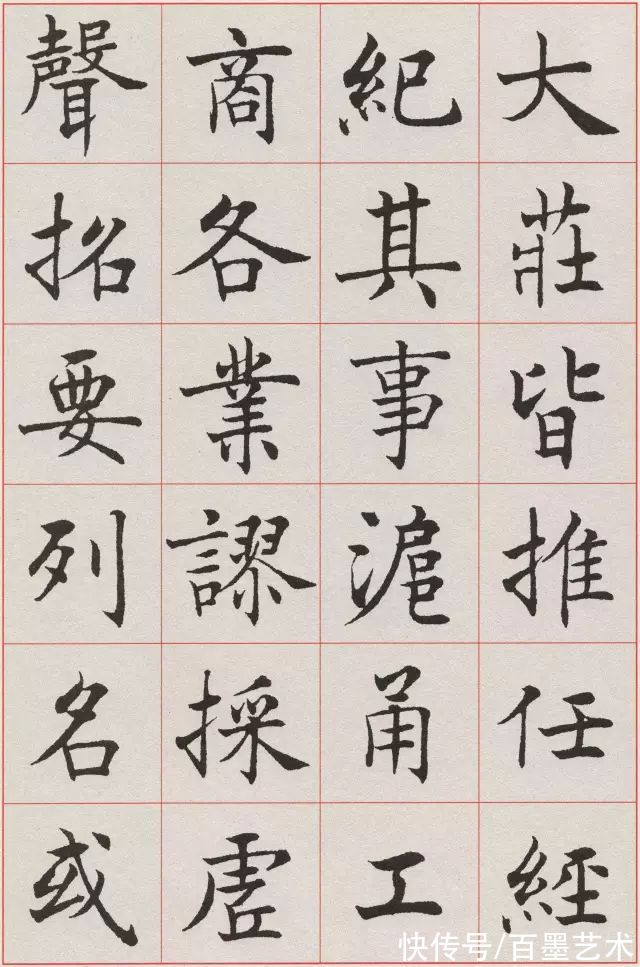 大莊皆推任經
紀其事滬甬工
商各業謬採虛
聲招要列名或
快传号/百墨艺术